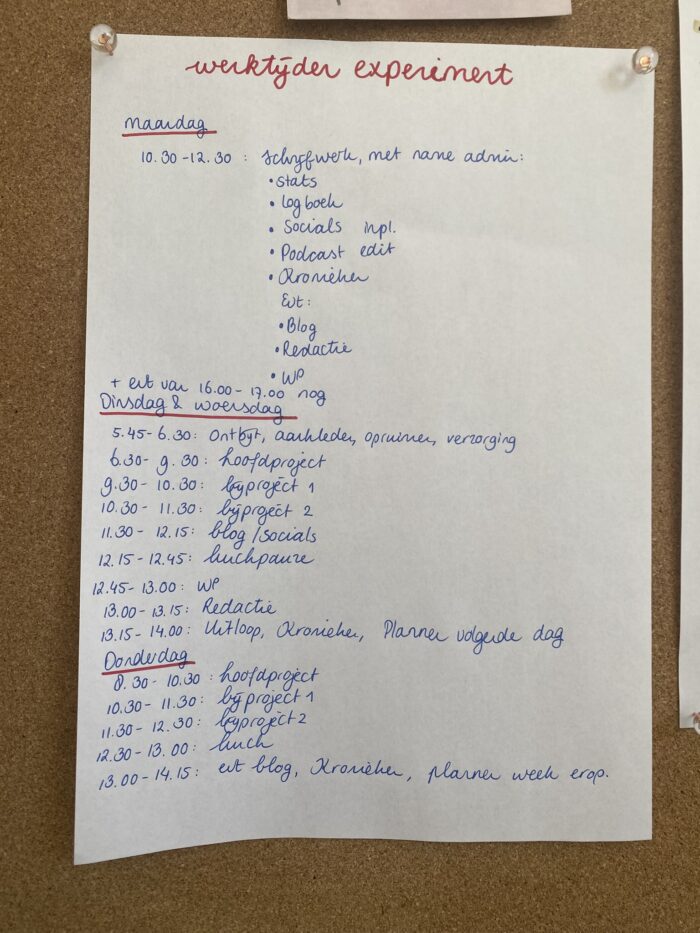 werktijden experiment
Maandag
10.30 - 12.30 : Schrijfwerk, met name admin:
• Stats
• Logboek
• Socials inpl.
• Podcast edit
• Kronieken
Evt:
• Blog
• Redactie
• WP
+ evt van 16.00 - 17.00 nog
Dinsdag & woensdag
5.45 - 6.30: Ontbijt, aankleden, opruimen, verzorging
6.30 - 9.30: hoofdproject
9.30 - 10.30: bijproject 1
10.30 - 11.30: bijproject 2
11.30 - 12.15: blog/socials
12.15 - 12.45: lunchpauze
12.45 - 13.00: WP
13.00 - 13.15: Redactie
13.15 - 14.00: Uitloop, Kronieken, Planner volgende dag
Donderdag
8.30 - 10.30: hoofdproject
10.30 - 11.30: bijproject 1
11.30 - 12.30: bijproject 2
12.30 - 13.00: lunch
13.00 - 14.15: evt blog, Kronieken, planner week erop.